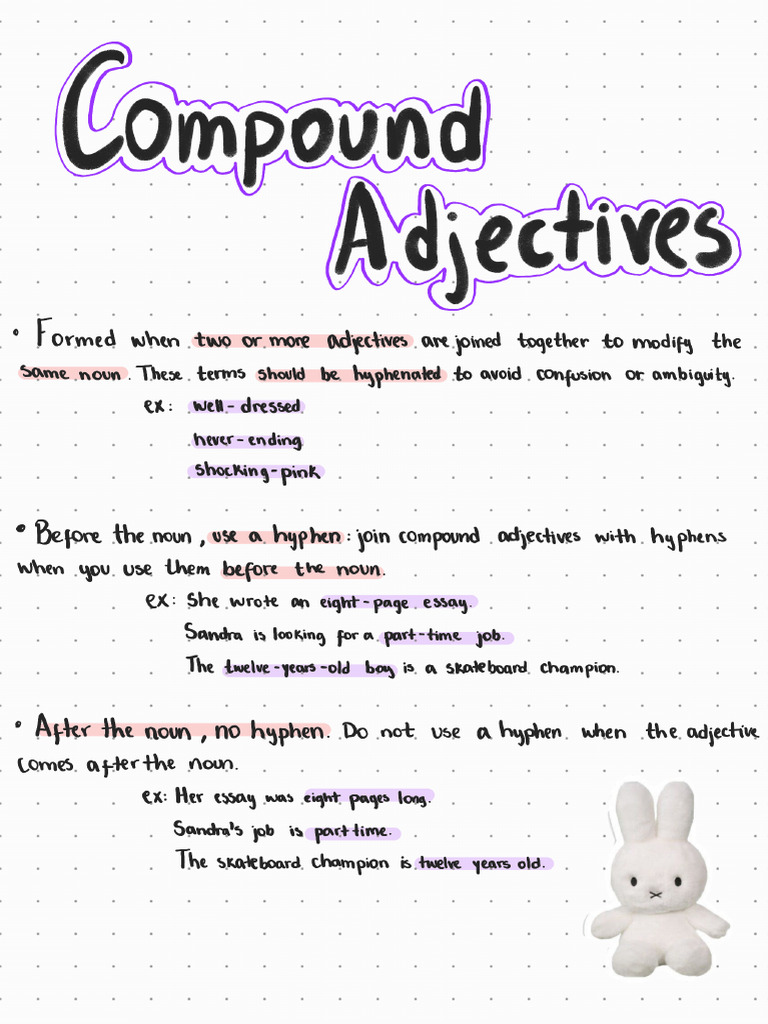 Compound
Adjectives
• Formed when two or more adjectives are joined together to modify the
same noun. These terms should be hyphenated to avoid confusion or ambiguity.
ex: well-dressed
never-ending
shocking-pink
• Before the noun, use a hyphen: join compound adjectives with hyphens
when you use them before the noun.
ex: She wrote an eight-page essay.
Sandra is looking for a part-time job.
The twelve-years-old boy is a skateboard champion.
• After the noun, no hyphen. Do not use a hyphen when the adjective
comes after the noun.
ex: Her essay was eight pages long.
Sandra's job is part time.
The skateboard champion is twelve years old.